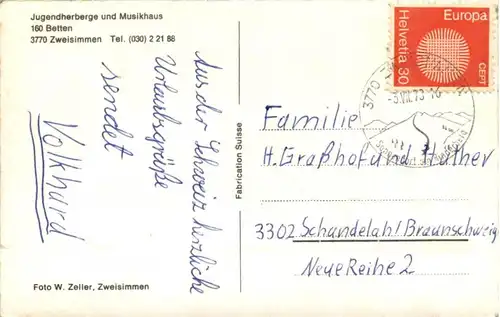 Jugendherberge und Musikhaus
160 Betten
3770 Zweisimmen Tel. (030) 2 21 88
Aus der Schweiz herzliche
Urlaubsgrüße
sendet
Volkhard
Foto W. Zeller, Zweisimmen
Fabrication Suisse
Europa
CEPT
Helvetia 30
3770
Familie
H. Graßhof und Huther
3302 Schandelah/Braunschweig
Neue Reihe 2